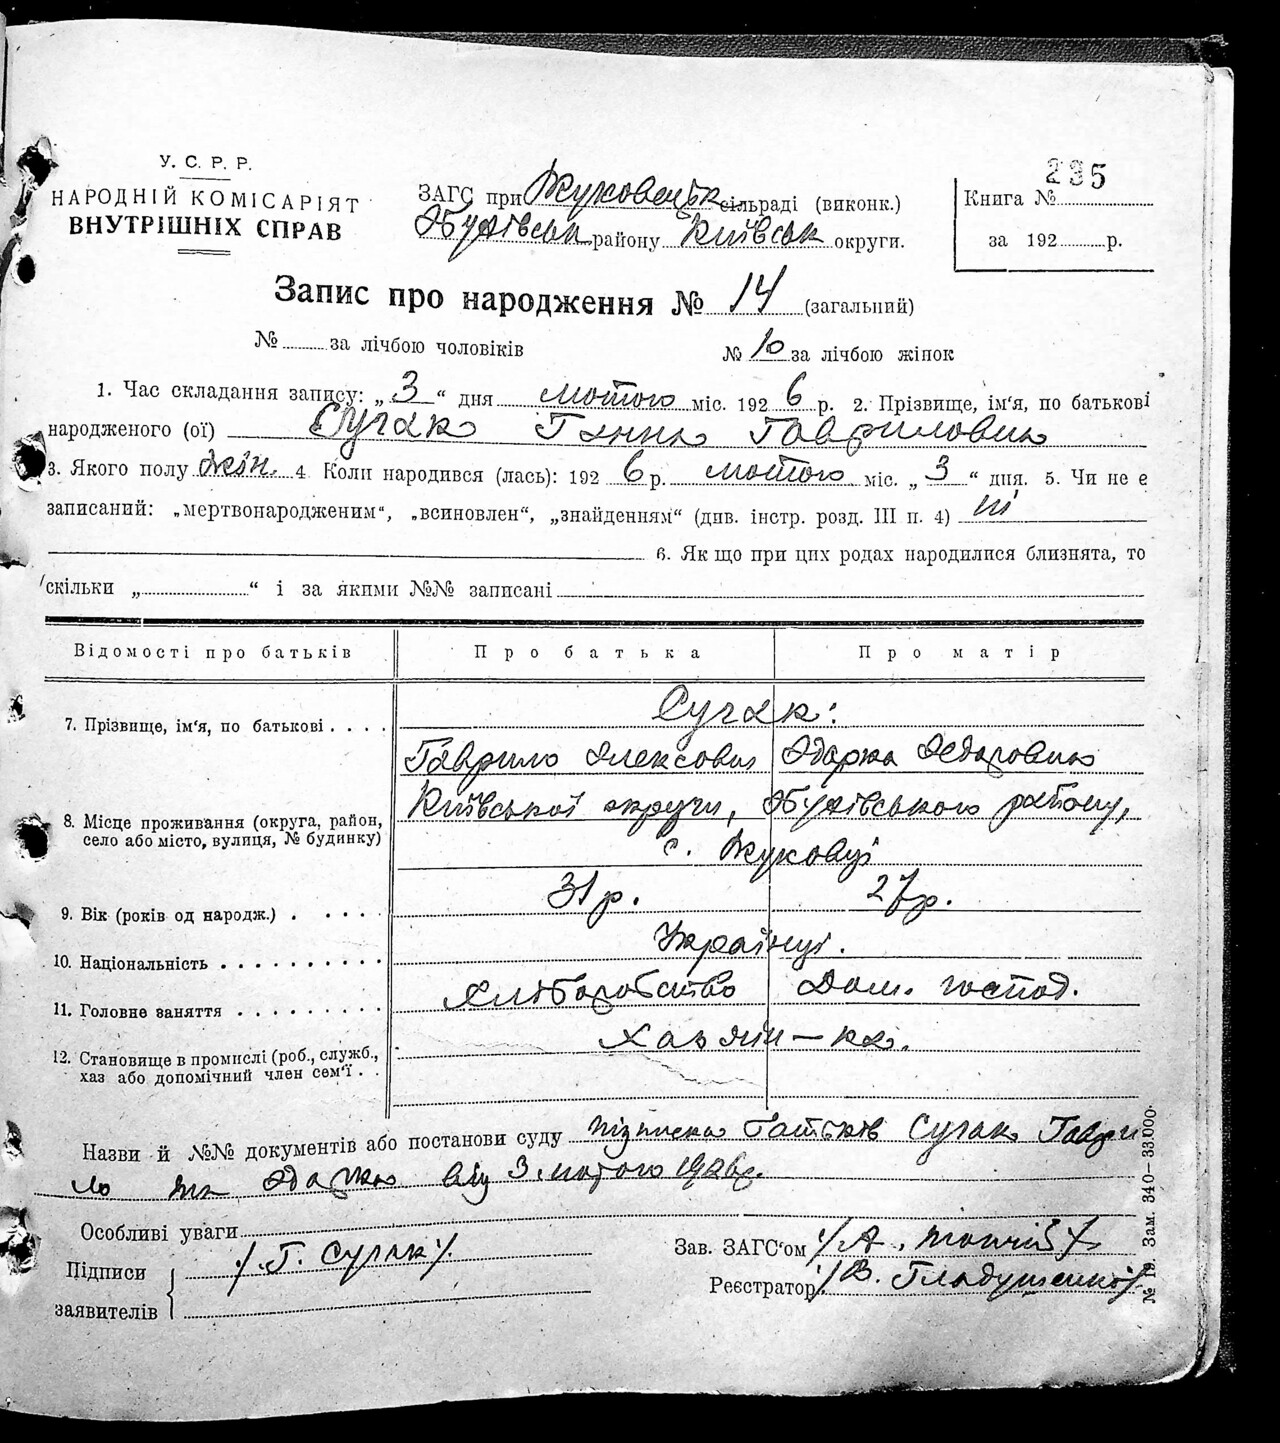 235
У. С. Р. Р.
НАРОДНІЙ КОМІСАРІЯТ
ВНУТРІШНІХ СПРАВ
ЗАГС при Жуковецьк сільраді (виконк.)
Обухівськ району Київськ округи.
Книга №
за 192 р.
Запис про народження № 14 (загальний)
№ за лічбою чоловіків № 10 за лічбою жінок
1. Час складання запису: „ 3 “ дня лютого міс. 192 6 р. 2. Прізвище, ім'я, по батькові
народженого (ої) Сугак Ганна Гавриловна
3. Якого полу жін. 4. Коли народився (лась): 192 6 р. лютого міс. „ 3 “ дня. 5. Чи не є
записаний: „мертвонародженим“, „всиновлен“, „знайденням“ (див. інстр. розд. III п. 4) ні
6. Як що при цих родах народилися близнята, то
скільки „ “ і за якими №№ записані
Відомості про батьків Про батька Про матір
7. Прізвище, ім'я, по батькові Сугак:
Гаврило Олексович Одарка Федоровна
8. Місце проживання (округа, район, село або місто, вулиця, № будинку) Київської округи, Обухівського району,
с. Жуковці
9. Вік (років од народж.) 31 р. 27 р.
10. Національність Українці.
11. Головне заняття Хліборобство Дом. господ.
12. Становище в промислі (роб., служб., Хазяїн – ка.
хаз або допомічний член сем'ї
Назви й №№ документів або постанови суду підписка батьків Сугак Гаври
ло та Одарка від 3 лютого 1926 р.
Особливі уваги
Підписи заявителів /Г. Сугак/.
Зав. ЗАГС'ом /А.
Реєстратор /В. Гладушенко/
№ 19. Зам. 340–33.000.